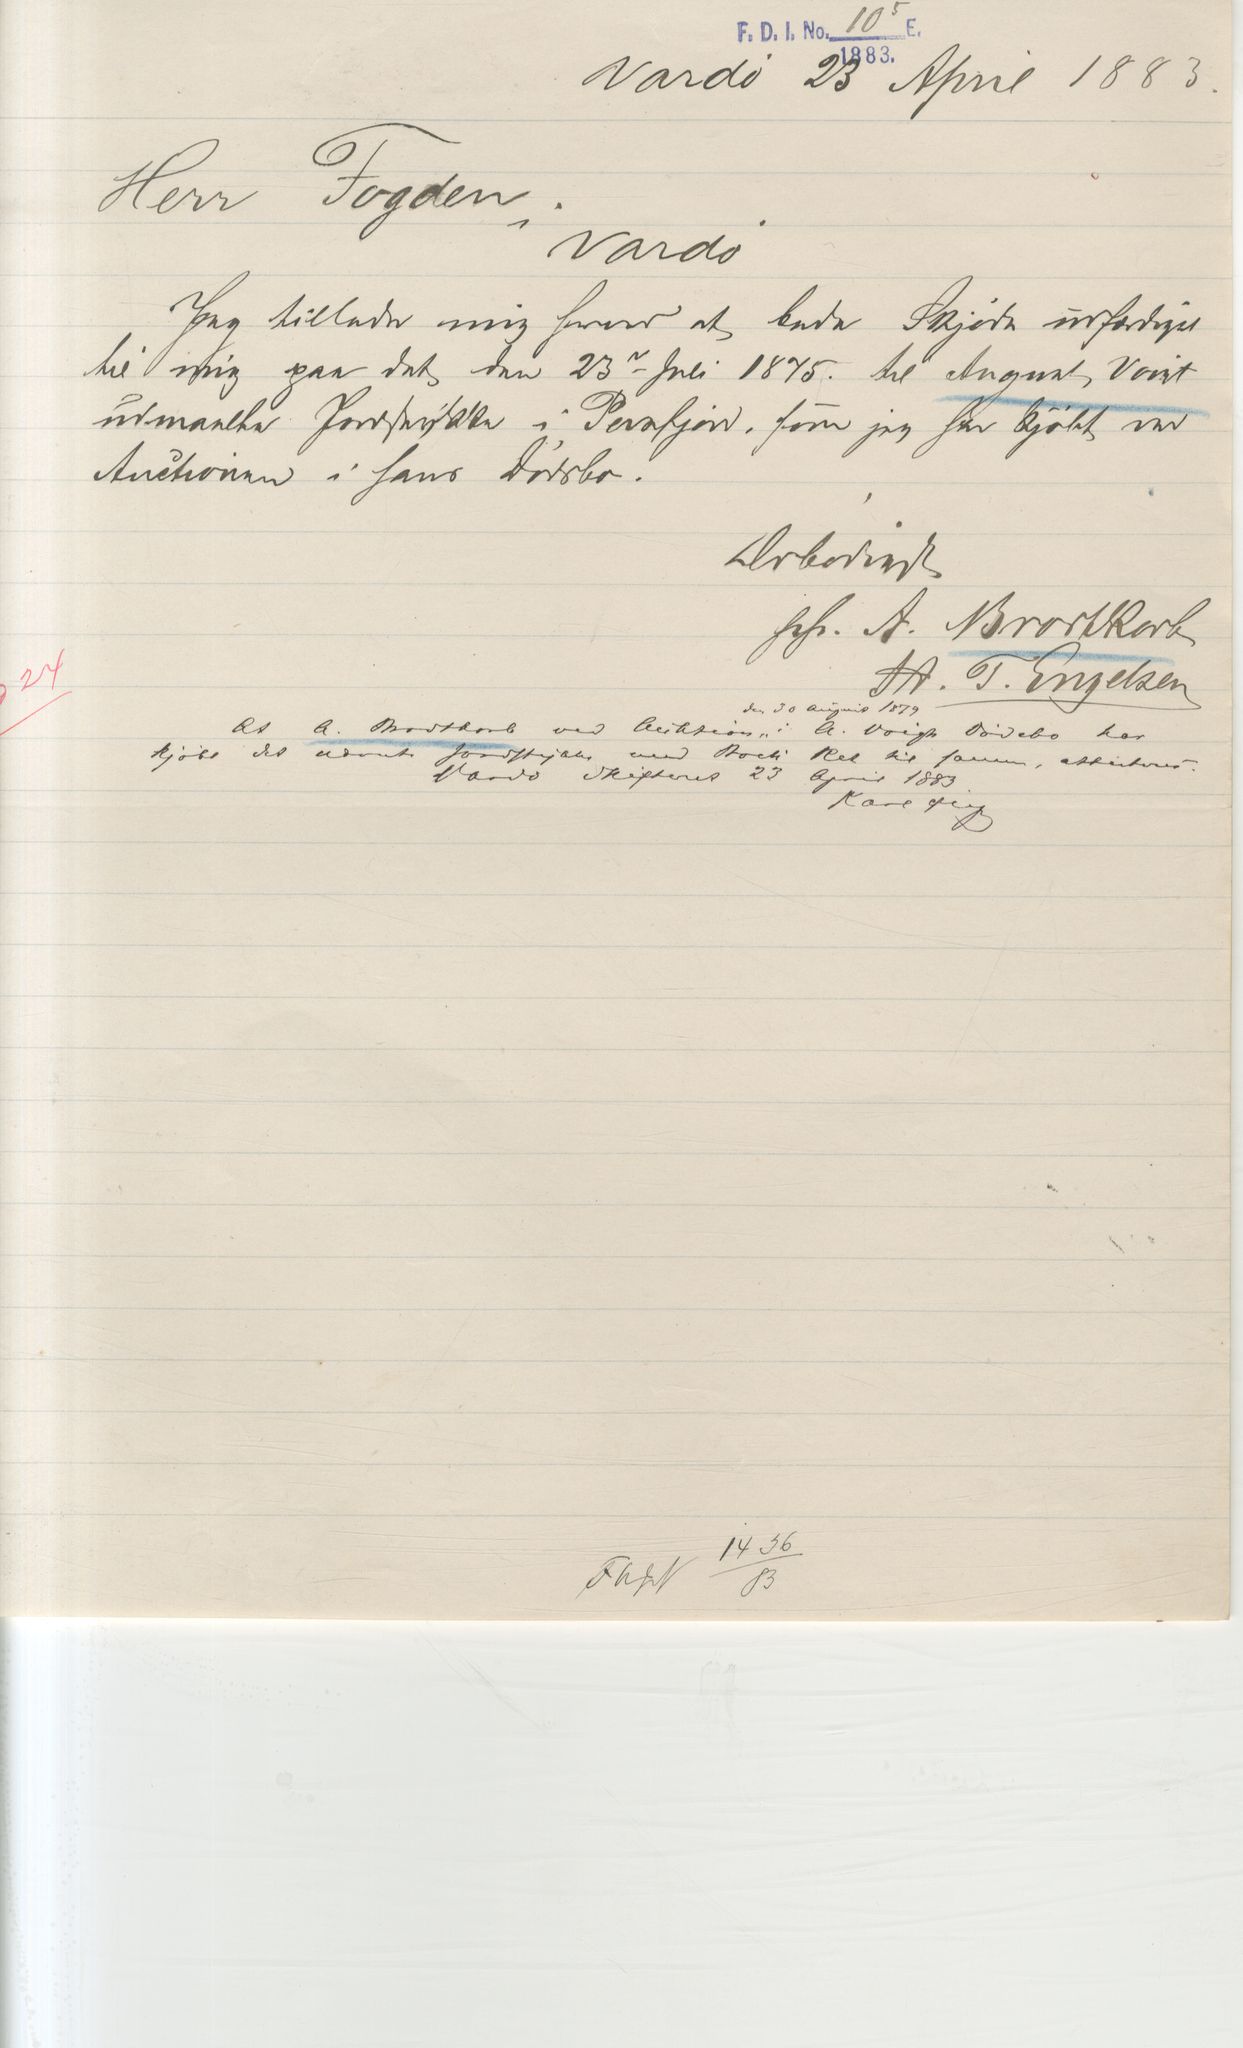 F. D. I. No. 10⁵ E.
1883.
Vardö 23 April 1883.
Herr Fogden i
Vardö
Jeg tillader mig herved at bede Skjøde udfærdiget
til mig paa det den 23de Juli 1875. til August Voigt
udmaalte Jordstykke i Persfjord, som jeg har kjøbt ved
Auctionen i hans Dødsbo.
Ærbødigst
A. Brodtkorb
T. Engelsen
den 30 August 1879
At A. Brodtkorb ved Auktion i A. Voigts Dödsbo har
kjöbt det nævnte Jordstykke med Ret til samme, attesteres.
Vardö Skifteret 23 April 1883
Karl
24
1436
83